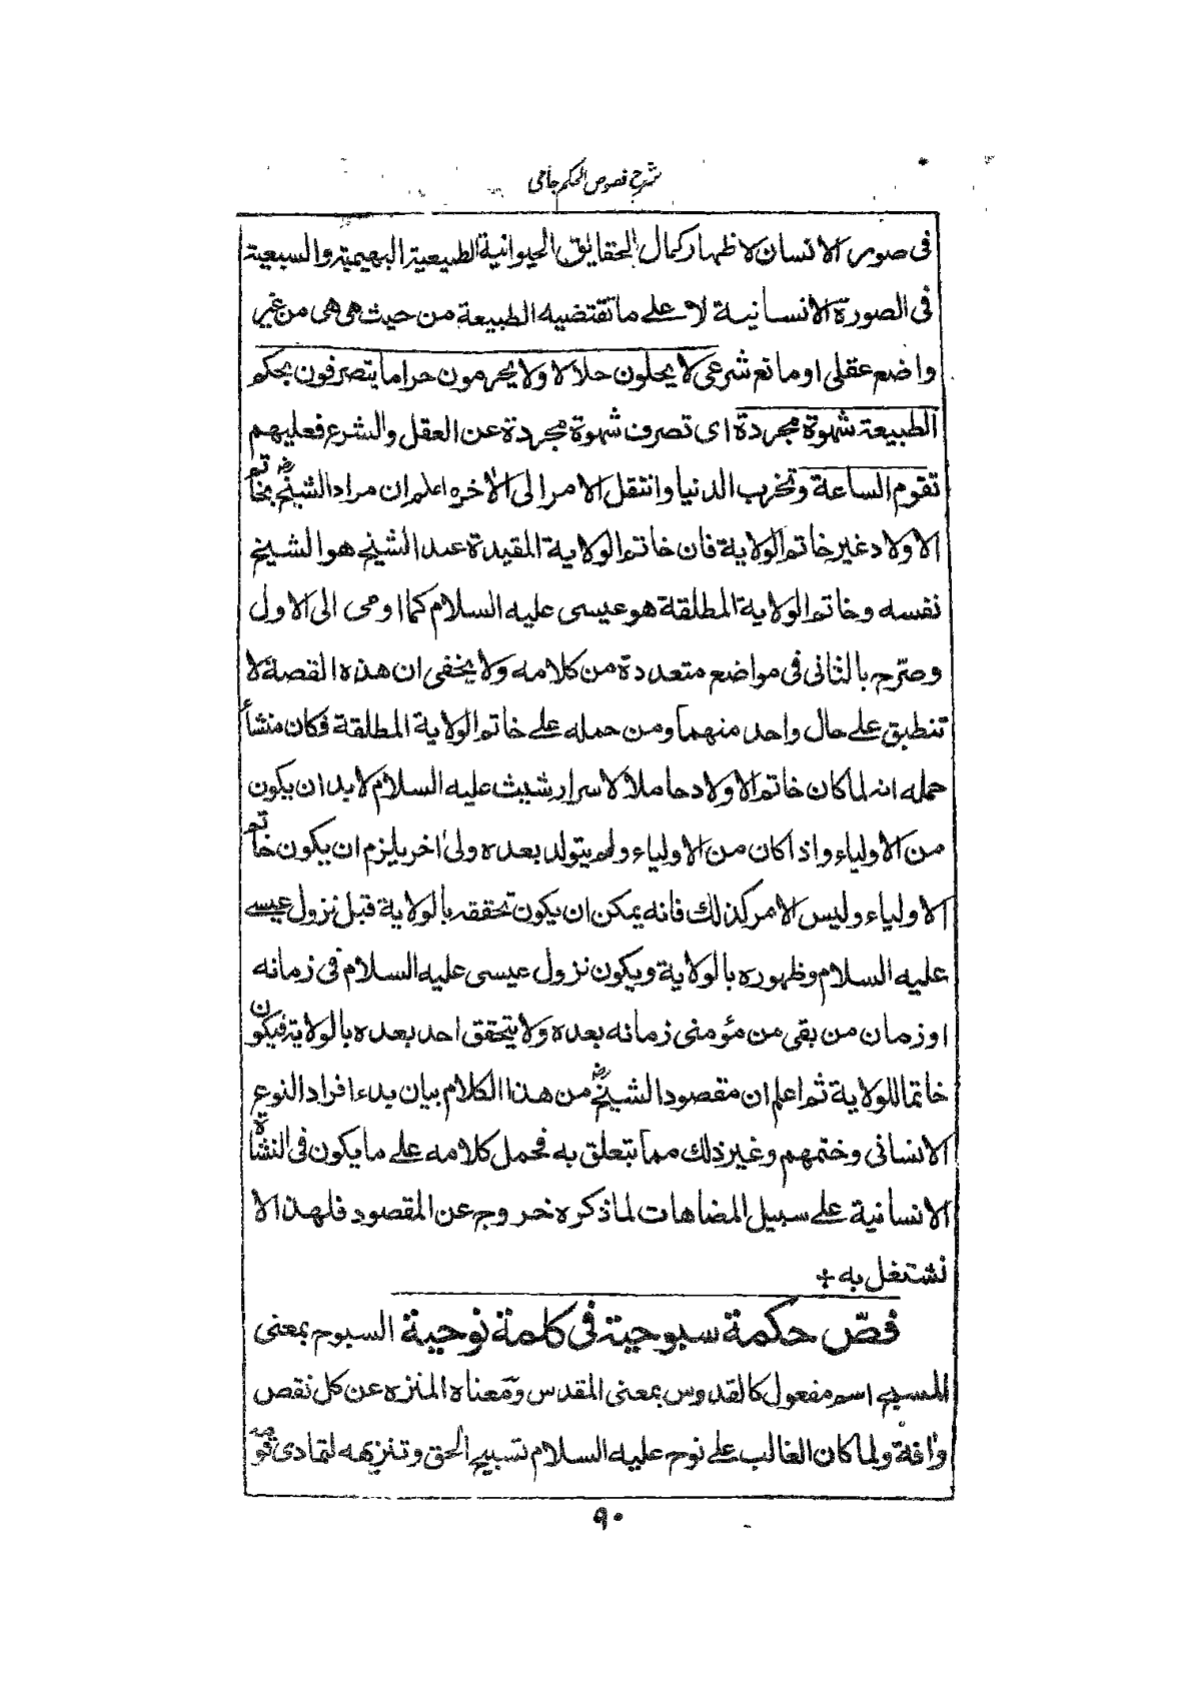 شرح فصوص الحكم جامى
فى صور الانسان لاظهار كمال الحقايق الحيوانية الطبيعية البهيمية والسبعية
فى الصورة الانسانية لا على ما تقتضيه الطبيعة من حيث هى هى من غير
واضع عقلى او مانع شرعى لا يحلون حلالا ولا يحرمون حراما يتصرفون بحكم
الطبيعة شهوة مجردة اى تصرف شهوة مجردة عن العقل والشرع فعليهم
تقوم الساعة وتخرب الدنيا وانتقل الامر الى الاخره اعلم ان مراد الشيخ بخاتم
الاولاد غير خاتم الولاية فان خاتم الولاية المقيدة عند الشيخ هو الشيخ
نفسه وخاتم الولاية المطلقة هو عيسى عليه السلام كما اومى الى الاول
وصرّح بالثانى فى مواضع متعددة من كلامه ولا يخفى ان هذه القصة لا
تنطبق على حال واحد منهما ومن حمله على خاتم الولاية المطلقة فكان منشأ
حمله انه لما كان خاتم الاولاد حاملا لاسرار شيث عليه السلام لابد ان يكون
من الاولياء واذا كان من الاولياء ولم يتولد بعده ولى اخر يلزم ان يكون خاتم
الاولياء وليس الامر كذلك فانه يمكن ان يكون تحققه بالولاية قبل نزول عيسى
عليه السلام وظهوره بالولاية ويكون نزول عيسى عليه السلام فى زمانه
او زمان من بقى من مؤمنى زمانه بعده ولا يتحقق احد بعده بالولاية فيكون
خاتما للولاية ثم اعلم ان مقصود الشيخ من هذا الكلام بيان بدء افراد النوع
الانسانى وختمهم وغير ذلك مما يتعلق به فحمل كلامه على ما يكون فى النشأة
الانسانية على سبيل المضاهات لما ذكره خروج عن المقصود فلهذا لا
نشتغل به
فصّ حكمة سبوحية فى كلمة نوحية السبوح بمعنى
المسبح اسم مفعول كالقدوس بمعنى المقدس ومعناه المنزه عن كل نقص
وافة ولما كان الغالب على نوح عليه السلام تسبيح الحق وتنزيهه لتمادى قومه
٩٠